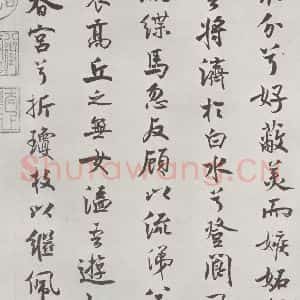 分兮好蔽美而嫉妬
將濟於白水兮登閬
緤馬忽反顧以流涕
哀高丘之無女溘吾遊
春宮兮折瓊枝以繼佩
Shufawang.CN